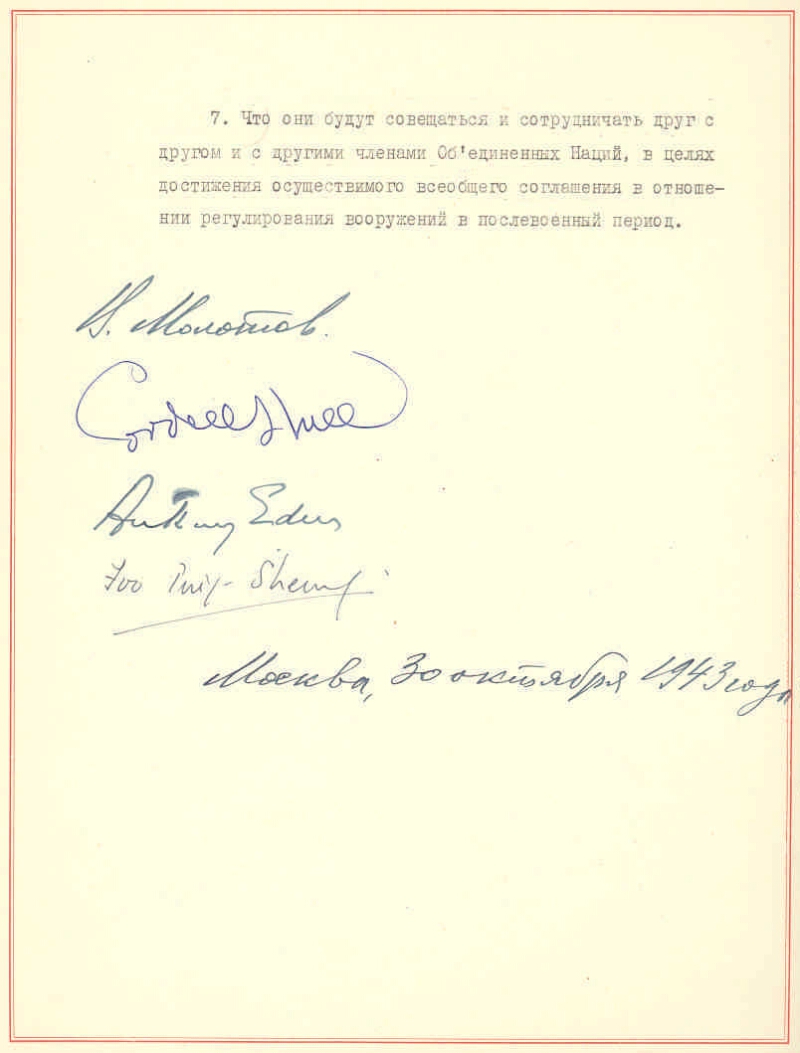 7. Что они будут совещаться и сотрудничать друг с
другом и с другими членами Об'единенных Наций, в целях
достижения осуществимого всеобщего соглашения в отноше-
нии регулирования вооружений в послевоенный период.
В. Молотов.
Cordell Hull
Anthony Eden
Foo Ping-Sheung
Москва, 30 октября 1943 года